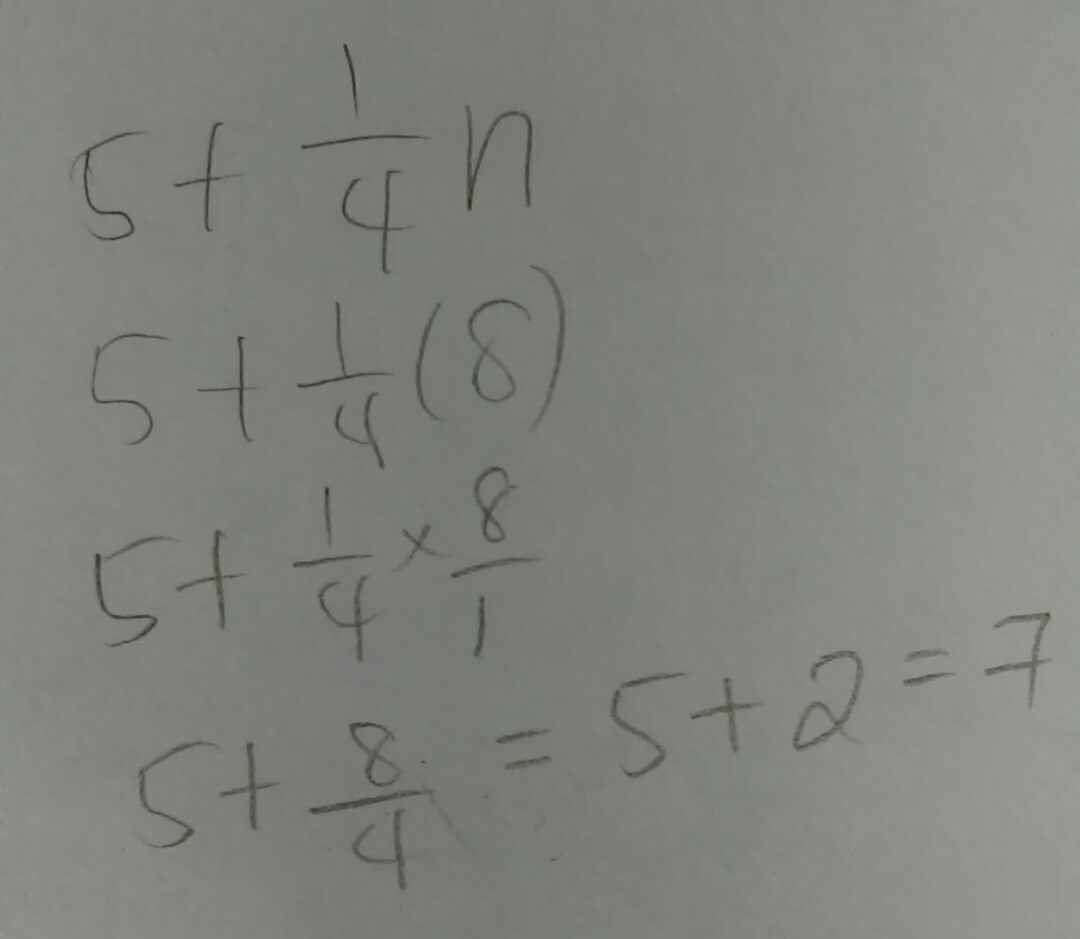 5 + 1/4 n
5 + 1/4 (8)
5 + 1/4 × 8/1
5 + 8/4 = 5 + 2 = 7